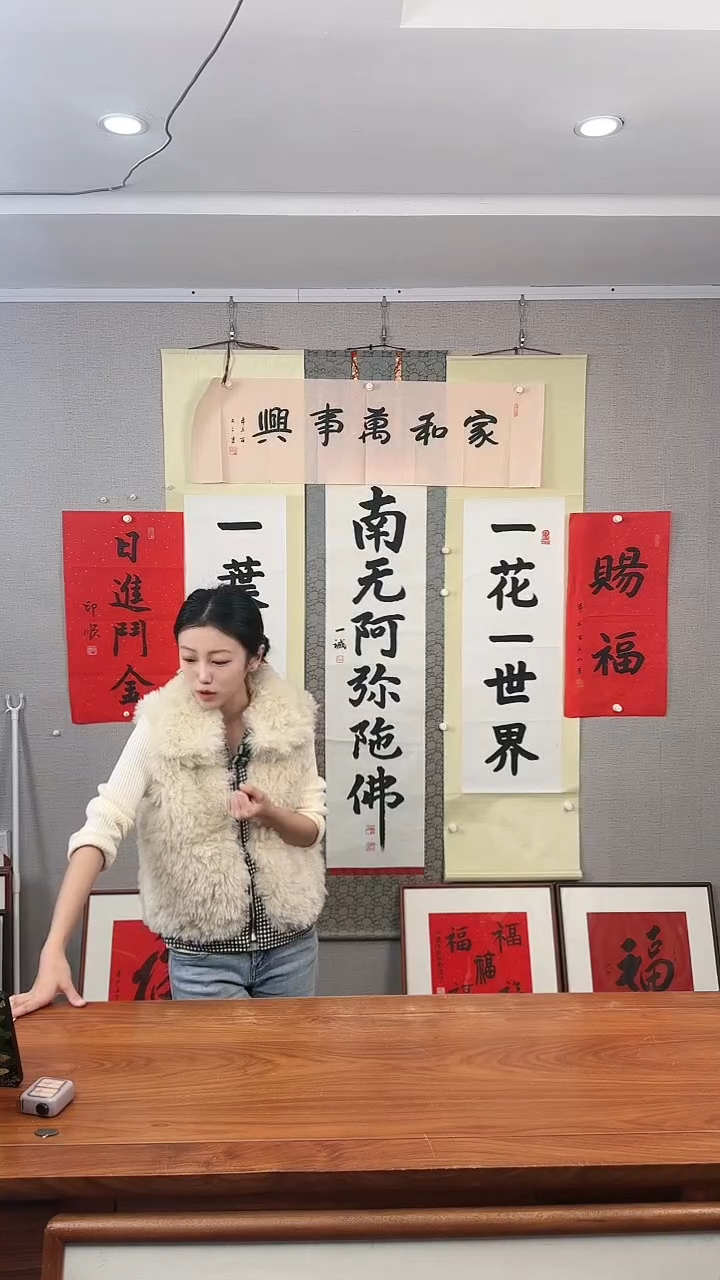 家和萬事興
賜福
一花一世界
南无阿弥陀佛
一誠
一葉
日進鬥金
印順
福
福
福
福